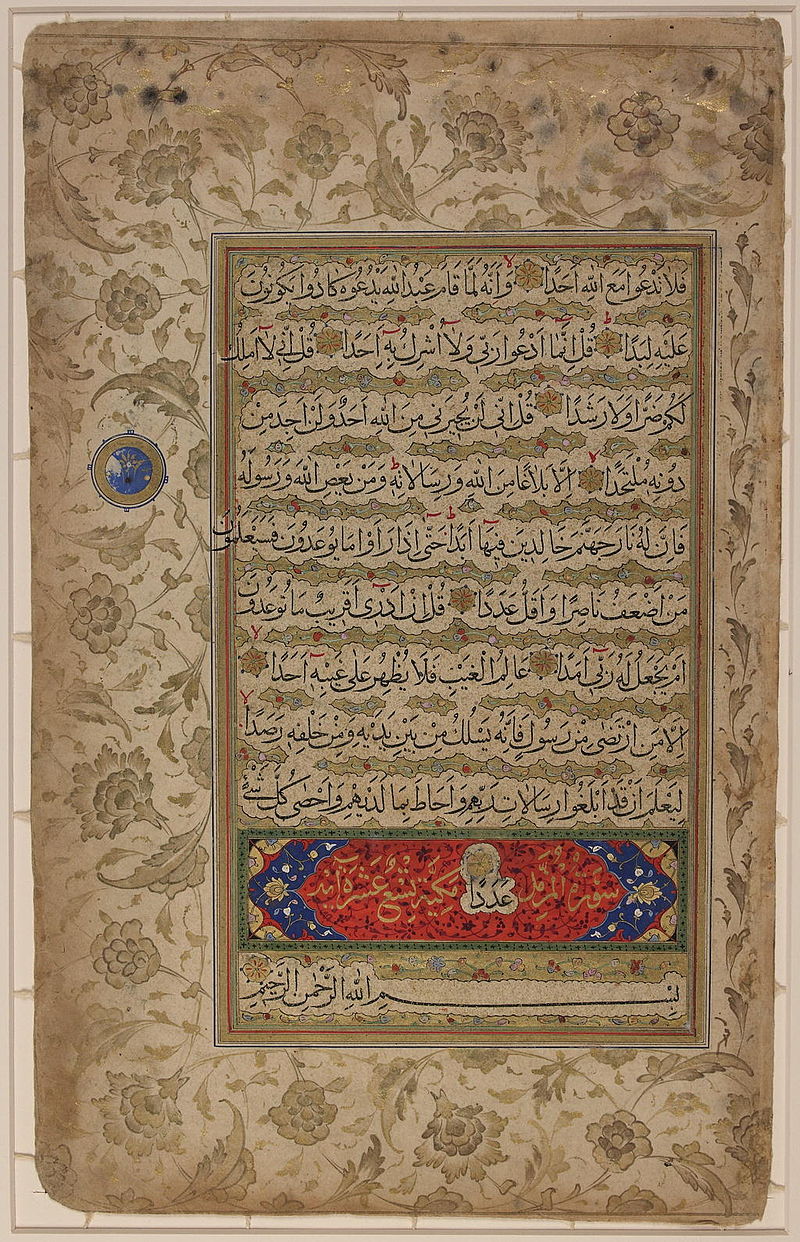 فَلَا تَدْعُوا مَعَ اللّٰهِ اَحَدًا وَاَنَّهُ لَمَّا قَامَ عَبْدُ اللّٰهِ يَدْعُوهُ كَادُوا يَكُونُونَ
عَلَيْهِ لِبَدًا قُلْ اِنَّمَا اَدْعُوا رَبّى وَلَا اُشْرِكُ بِهِ اَحَدًا قُلْ اِنّى لَا اَمْلِكُ
لَكُمْ ضَرًّا وَلَا رَشَدًا قُلْ اِنّى لَنْ يُجيرَنى مِنَ اللّٰهِ اَحَدٌ وَلَنْ اَجِدَ مِنْ
دُونِهِ مُلْتَحَدًا اِلَّا بَلَاغًا مِنَ اللّٰهِ وَرِسَالَاتِهِ وَمَنْ يَعْصِ اللّٰهَ وَرَسُولَهُ
فَاِنَّ لَهُ نَارَ جَهَنَّمَ خَالِدينَ فيهَا اَبَدًا حَتّٰى اِذَا رَاَوْا مَا يُوعَدُونَ فَسَيَعْلَمُونَ
مَنْ اَضْعَفُ نَاصِرًا وَاَقَلُّ عَدَدًا قُلْ اِنْ اَدْرى اَقَريبٌ مَا تُوعَدُونَ
اَمْ يَجْعَلُ لَهُ رَبّى اَمَدًا عَالِمُ الْغَيْبِ فَلَا يُظْهِرُ عَلٰى غَيْبِهِ اَحَدًا
اِلَّا مَنِ ارْتَضٰى مِنْ رَسُولٍ فَاِنَّهُ يَسْلُكُ مِنْ بَيْنِ يَدَيْهِ وَمِنْ خَلْفِهِ رَصَدًا
لِيَعْلَمَ اَنْ قَدْ اَبْلَغُوا رِسَالَاتِ رَبِّهِمْ وَاَحَاطَ بِمَا لَدَيْهِمْ وَاَحْصٰى كُلَّ شَىْءٍ
سُورَةُ الْمُزَّمِّلِ عَدَدًا مَكِّيَّةٌ تِسْعَ عَشْرَةَ آيَةً
بِسْمِ اللّٰهِ الرَّحْمٰنِ الرَّحيمِ